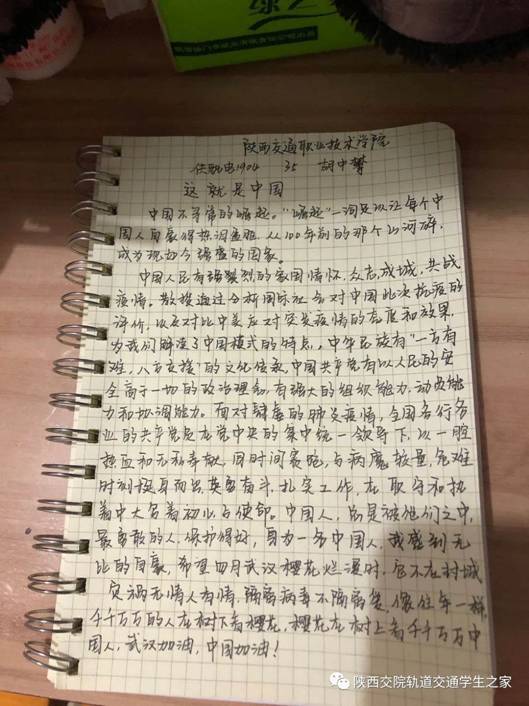 陕西交通职业技术学院
供配电1904 35 胡中
这就是中国
中国不寻常的崛起。“崛起”一词足以让每个中
国人自豪得热泪盈眶，从100年前的那个山河碎，
成为现如今强盛的国家。
中国人民有强烈的家国情怀，众志成城，共战
疫情。教授通过分析国际社会对中国此次抗疫的
评价，以及对比中美应对突发疫情的态度和效果，
为我们解读了中国模式的特点，中华民族有“一方有
难，八方支援”的文化传承，中国共产党有以人民的安
全高于一切的政治理念，有强大的组织能力，动员能
力和协调能力。面对肆虐的肺炎疫情，全国各行各
业的共产党员在党中央的集中统一领导下，以一腔
热血和无私奉献，同时间赛跑，与病魔较量，危难
时刻挺身而出，英勇奋斗，扎实工作，在职守和执
着中大写着初心与使命。中国人，总是被他们之中，
最勇敢的人，保护得好，身为一名中国人，我感到无
比的自豪，希望四月武汉樱花烂漫时，它不在封城
灾祸无情人有情，隔离病毒不隔离爱，像往年一样，
千千万万的人在树下看樱花，樱花在树上看千千万万中
国人，武汉加油，中国加油！
陕西交院轨道交通学生之家